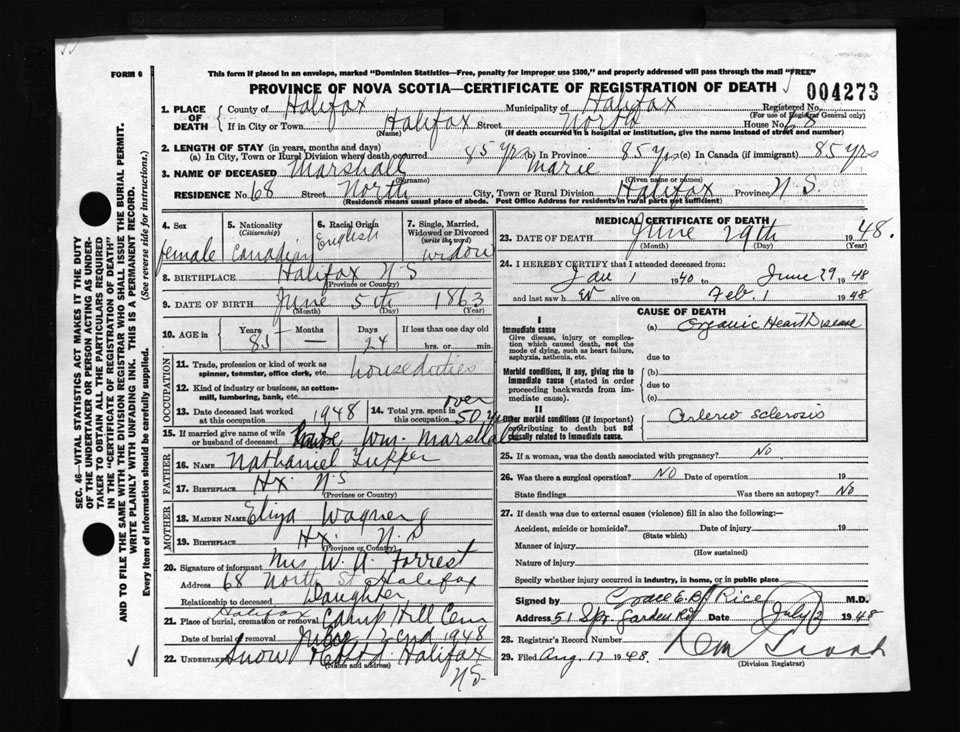 FORM 6
This form if placed in an envelope, marked "Dominion Statistics—Free, penalty for improper use $300," and properly addressed will pass through the mail "FREE"
PROVINCE OF NOVA SCOTIA—CERTIFICATE OF REGISTRATION OF DEATH
004273
1. PLACE OF DEATH
County of Halifax Municipality of Halifax Registered No.
(For use of Registrar General only)
If in City or Town Halifax Street North House No. 68
(Name) (If death occurred in a hospital or institution, give the name instead of street and number)
2. LENGTH OF STAY (in years, months and days)
(a) In City, Town or Rural Division where death occurred 85 yrs (b) In Province 85 yrs (c) In Canada (if immigrant) 85 yrs
3. NAME OF DECEASED Marshall Marie
(Surname) (Given name or names)
RESIDENCE No. 68 Street North City, Town or Rural Division Halifax Province N.S.
(Residence means usual place of abode. Post Office Address for residents in rural parts not sufficient)
4. Sex
female
5. Nationality
(Citizenship)
Canadian
6. Racial Origin
English
7. Single, Married, Widowed or Divorced
(write the word)
widow
8. BIRTHPLACE Halifax N S
(Province or Country)
9. DATE OF BIRTH June 5th 1863
(Month) (Day) (Year)
10. AGE in
Years Months Days If less than one day old
85 — 24 hrs. or min.
OCCUPATION
11. Trade, profession or kind of work as spinner, teamster, office clerk, etc. house duties
12. Kind of industry or business, as cotton-mill, lumbering, bank, etc.
13. Date deceased last worked at this occupation 1948
14. Total yrs. spent in this occupation over 50 yrs
15. If married give name of wife or husband of deceased Wm. Marshall
FATHER
16. NAME Nathaniel Tupper
17. BIRTHPLACE Hx. N.S
(Province or Country)
MOTHER
18. MAIDEN NAME Eliza Wagner
19. BIRTHPLACE Hx. N.S
(Province or Country)
20. Signature of informant Mrs W. A. Forrest
Address 68 North St Halifax
Relationship to deceased Daughter
Halifax
21. Place of burial, cremation or removal Camp Hill Cem
Date of burial or removal 2nd 1948
22. UNDERTAKER Snow Halifax
(Name and address)
N.S.
MEDICAL CERTIFICATE OF DEATH
23. DATE OF DEATH June 29th 1948.
(Month) (Day) (Year)
24. I HEREBY CERTIFY that I attended deceased from:
Jan 1 1940 to June 29 1948
and last saw her alive on Feb. 1 1948
CAUSE OF DEATH
I
Immediate cause
Give disease, injury or complication which caused death, not the mode of dying, such as heart failure, asphyxia, asthenia, etc.
(a) Organic Heart Disease
due to
Morbid conditions, if any, giving rise to immediate cause (stated in order proceeding backwards from immediate cause).
(b)
due to
(c)
II
Other morbid conditions (if important) contributing to death but not causally related to immediate cause.
Arterio sclerosis
25. If a woman, was the death associated with pregnancy? No
26. Was there a surgical operation? No Date of operation 19
State findings Was there an autopsy? No
27. If death was due to external causes (violence) fill in also the following:—
Accident, suicide or homicide? Date of injury 19
(State which)
Manner of injury
(How sustained)
Nature of injury
Specify whether injury occurred in industry, in home, or in public place
Signed by Grace E. B. Rice M.D.
Address 51 Spr. Garden Rd Date July 2 1948
28. Registrar's Record Number
29. Filed Aug. 17 1948.
(Division Registrar)
SEC. 46—VITAL STATISTICS ACT MAKES IT THE DUTY
OF THE UNDERTAKER OR PERSON ACTING AS UNDER-
TAKER TO OBTAIN ALL THE PARTICULARS REQUIRED
IN THE "CERTIFICATE OF REGISTRATION OF DEATH"
AND TO FILE THE SAME WITH THE DIVISION REGISTRAR WHO SHALL ISSUE THE BURIAL PERMIT.
WRITE PLAINLY WITH UNFADING INK. THIS IS A PERMANENT RECORD.
Every item of information should be carefully supplied. (See reverse side for instructions.)